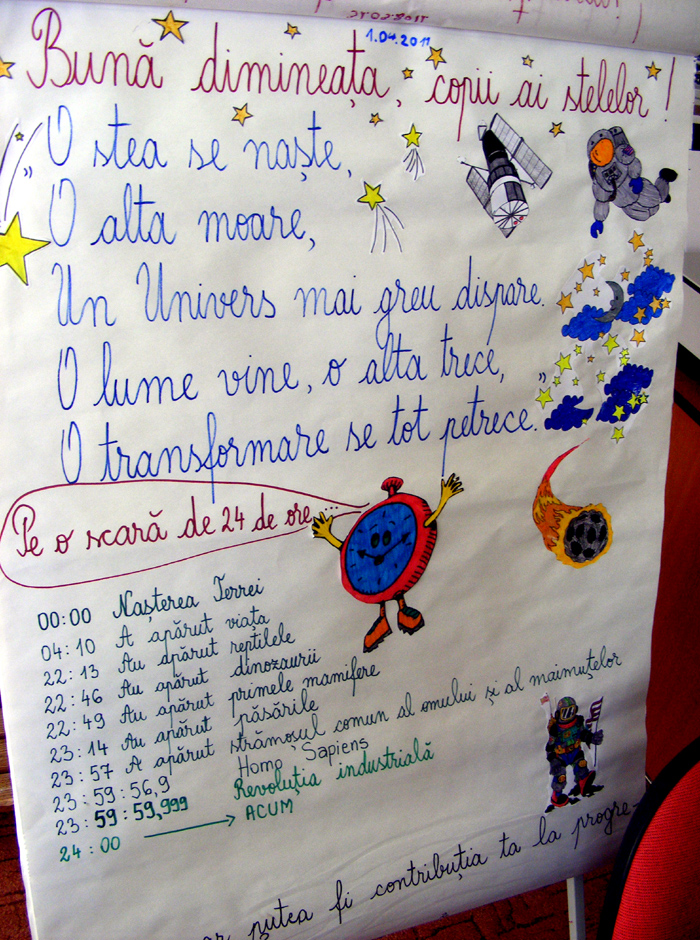 1.04.2011
Bună dimineața, copii ai stelelor!
„O stea se naște,
O alta moare,
Un Univers mai greu dispare.
O lume vine, o alta trece,
O transformare se tot petrece."
Pe o scară de 24 de ore...
00:00 Nașterea Terrei
04:10 A apărut viața
22:13 Au apărut reptilele
22:46 Au apărut dinozaurii
22:49 Au apărut primele mamifere
23:14 Au apărut păsările
23:57 A apărut strămosul comun al omului și al maimuțelor
23:59:56,9 Homo Sapiens
23:59:59,999 Revoluția industrială
24:00 → ACUM
putea fi contribuția ta la progre-